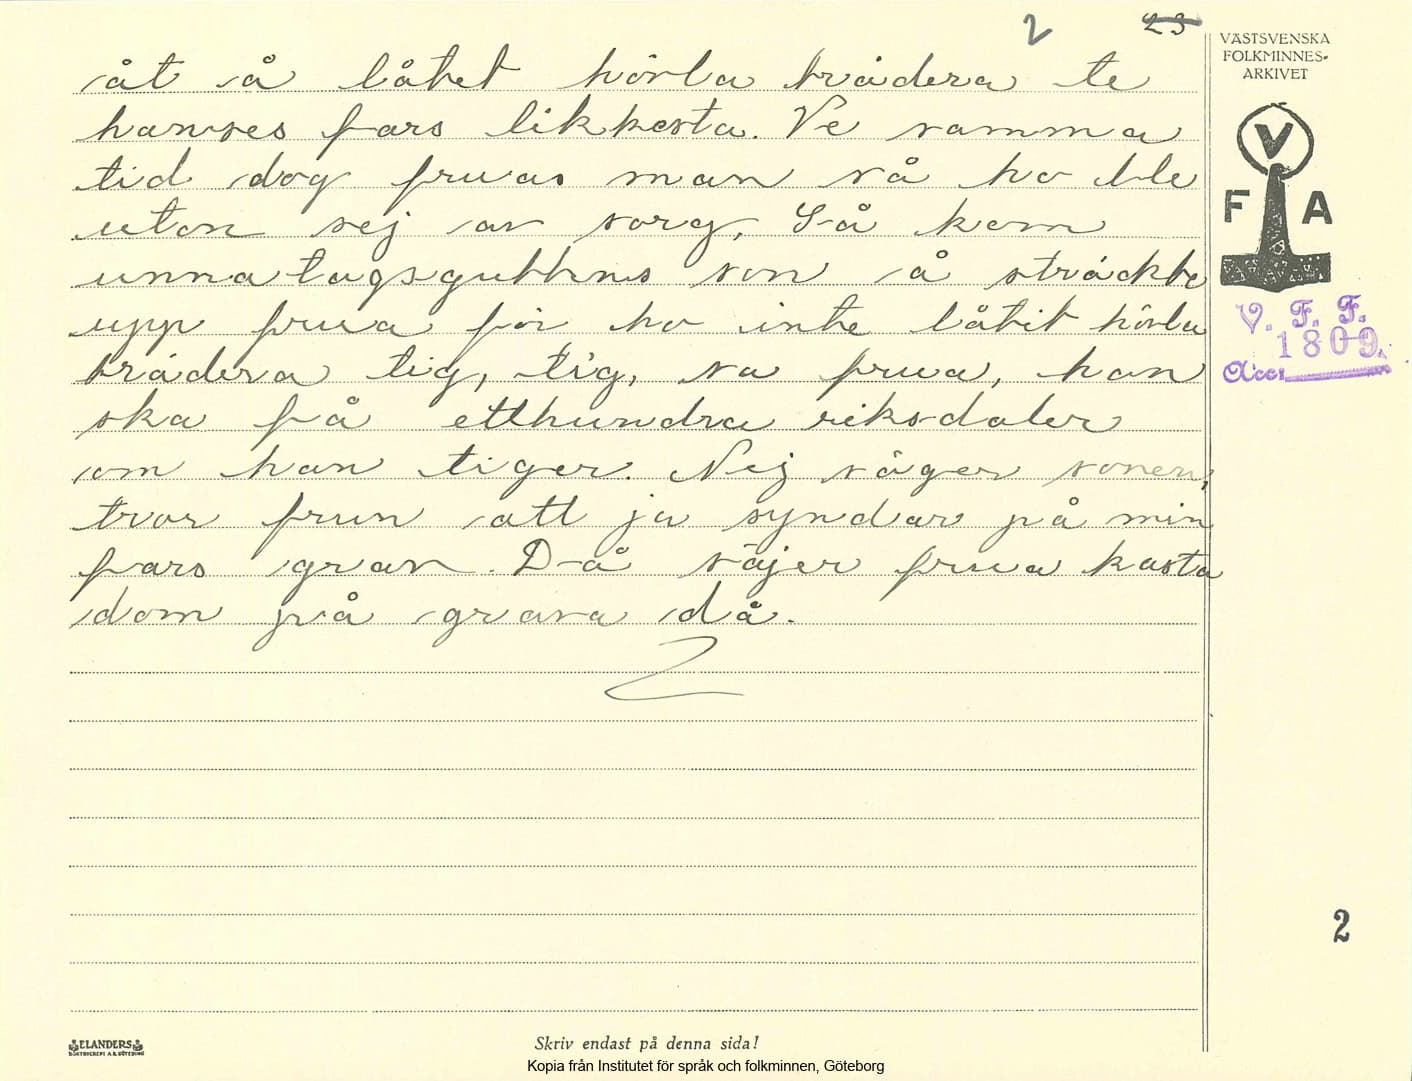 2 23
VÄSTSVENSKA
FOLKMINNES-
ARKIVET
V
F A
V. F. F.
1809.
Acc.
åt så låtet hörla brädera te
hanses fars likkesta. Ve samma
tid dog fruas man så ho ble
uton sej av sorg. Så kom
unnatagsgubbens son å sträckte
upp frua för ho inte låtit hörla
brädera tig, tig, sa frua, han
ska få etthundra riksdaler
om han tiger. Nej säger sonen,
tror frun att ja syndar på min
fars grav. Då säjer frua kasta
dom på grava då.
2
ELANDERS
BOKTRYCKERI A.B. GÖTEBORG
Skriv endast på denna sida!
Kopia från Institutet för språk och folkminnen, Göteborg